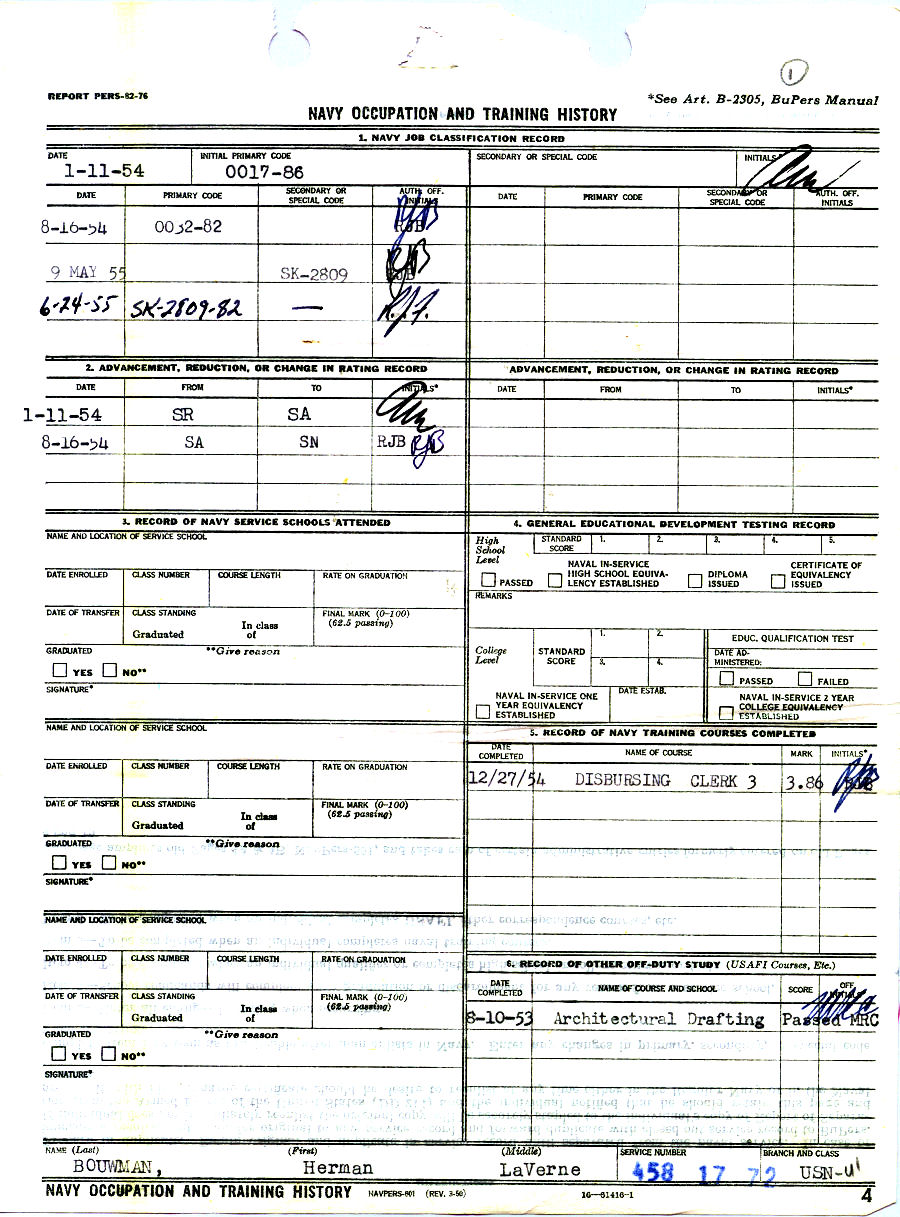 1
REPORT PERS-82-76
*See Art. B-2305, BuPers Manual
NAVY OCCUPATION AND TRAINING HISTORY
1. NAVY JOB CLASSIFICATION RECORD
DATE INITIAL PRIMARY CODE SECONDARY OR SPECIAL CODE INITIALS
1-11-54 0017-86
DATE PRIMARY CODE SECONDARY OR SPECIAL CODE AUTH. OFF. INITIALS DATE PRIMARY CODE SECONDARY OR SPECIAL CODE AUTH. OFF. INITIALS
8-16-54 0032-82 RJB
9 MAY 55 SK-2809 RJB
6-24-55 SK-2809-82 — R.J.F.
2. ADVANCEMENT, REDUCTION, OR CHANGE IN RATING RECORD ADVANCEMENT, REDUCTION, OR CHANGE IN RATING RECORD
DATE FROM TO INITIALS* DATE FROM TO INITIALS*
1-11-54 SR SA
8-16-54 SA SN RJB RJB
3. RECORD OF NAVY SERVICE SCHOOLS ATTENDED
NAME AND LOCATION OF SERVICE SCHOOL
DATE ENROLLED CLASS NUMBER COURSE LENGTH RATE ON GRADUATION
DATE OF TRANSFER CLASS STANDING FINAL MARK (0-100)
Graduated In class of (62.5 passing)
GRADUATED **Give reason
YES NO**
SIGNATURE*
NAME AND LOCATION OF SERVICE SCHOOL
DATE ENROLLED CLASS NUMBER COURSE LENGTH RATE ON GRADUATION
DATE OF TRANSFER CLASS STANDING FINAL MARK (0-100)
Graduated In class of (62.5 passing)
GRADUATED **Give reason
YES NO**
SIGNATURE*
NAME AND LOCATION OF SERVICE SCHOOL
DATE ENROLLED CLASS NUMBER COURSE LENGTH RATE ON GRADUATION
DATE OF TRANSFER CLASS STANDING FINAL MARK (0-100)
Graduated In class of (62.5 passing)
GRADUATED **Give reason
YES NO**
SIGNATURE*
4. GENERAL EDUCATIONAL DEVELOPMENT TESTING RECORD
High School Level STANDARD SCORE 1. 2. 3. 4. 5.
PASSED NAVAL IN-SERVICE HIGH SCHOOL EQUIVA-LENCY ESTABLISHED DIPLOMA ISSUED CERTIFICATE OF EQUIVALENCY ISSUED
REMARKS
College Level STANDARD SCORE 1. 2. 3. 4. EDUC. QUALIFICATION TEST
DATE AD-MINISTERED:
PASSED FAILED
NAVAL IN-SERVICE ONE YEAR EQUIVALENCY ESTABLISHED DATE ESTAB. NAVAL IN-SERVICE 2 YEAR COLLEGE EQUIVALENCY ESTABLISHED
5. RECORD OF NAVY TRAINING COURSES COMPLETED
DATE COMPLETED NAME OF COURSE MARK INITIALS*
12/27/54 DISBURSING CLERK 3 3.86 RJB
6. RECORD OF OTHER OFF-DUTY STUDY (USAFI Courses, Etc.)
DATE COMPLETED NAME OF COURSE AND SCHOOL SCORE OFF. INITIALS
8-10-53 Architectural Drafting Passed MRC
NAME (Last) (First) (Middle) SERVICE NUMBER BRANCH AND CLASS
BOUWMAN, Herman LaVerne 458 17 72 USN-u
NAVY OCCUPATION AND TRAINING HISTORY NAVPERS-601 (REV. 3-50) 16—61416-1 4